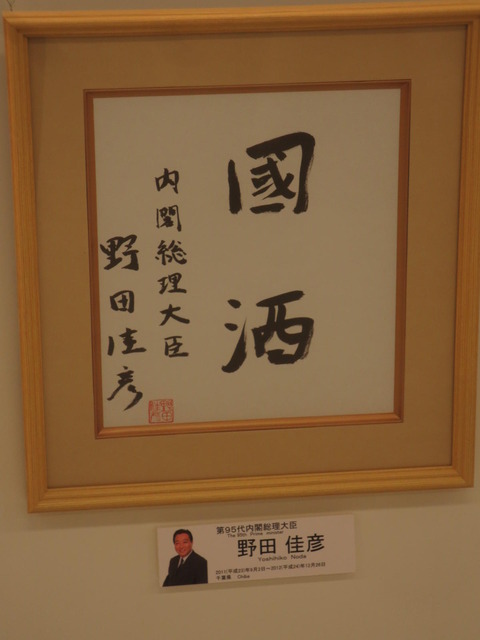 國酒
内閣総理大臣
野田佳彦
第95代内閣総理大臣
The 95th Prime minister
野田 佳彦
Yoshihiko Noda
2011(平成23)年9月2日~2012(平成24)年12月26日
千葉県 Chiba